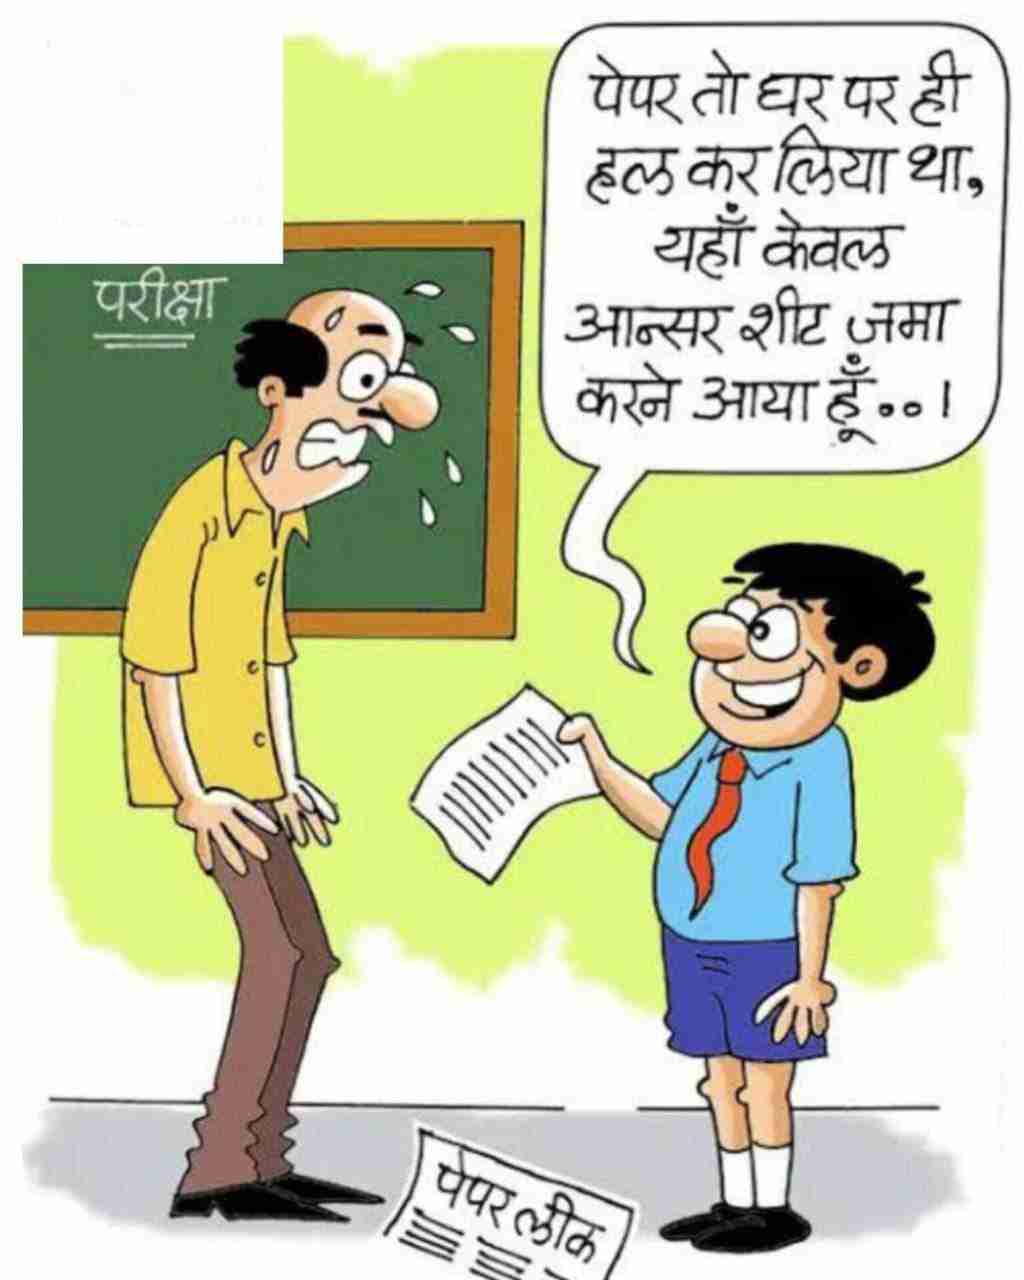 पेपर तो घर पर ही
हल कर लिया था,
यहाँ केवल
आन्सर शीट जमा
करने आया हूँ..।
परीक्षा
पेपर लीक